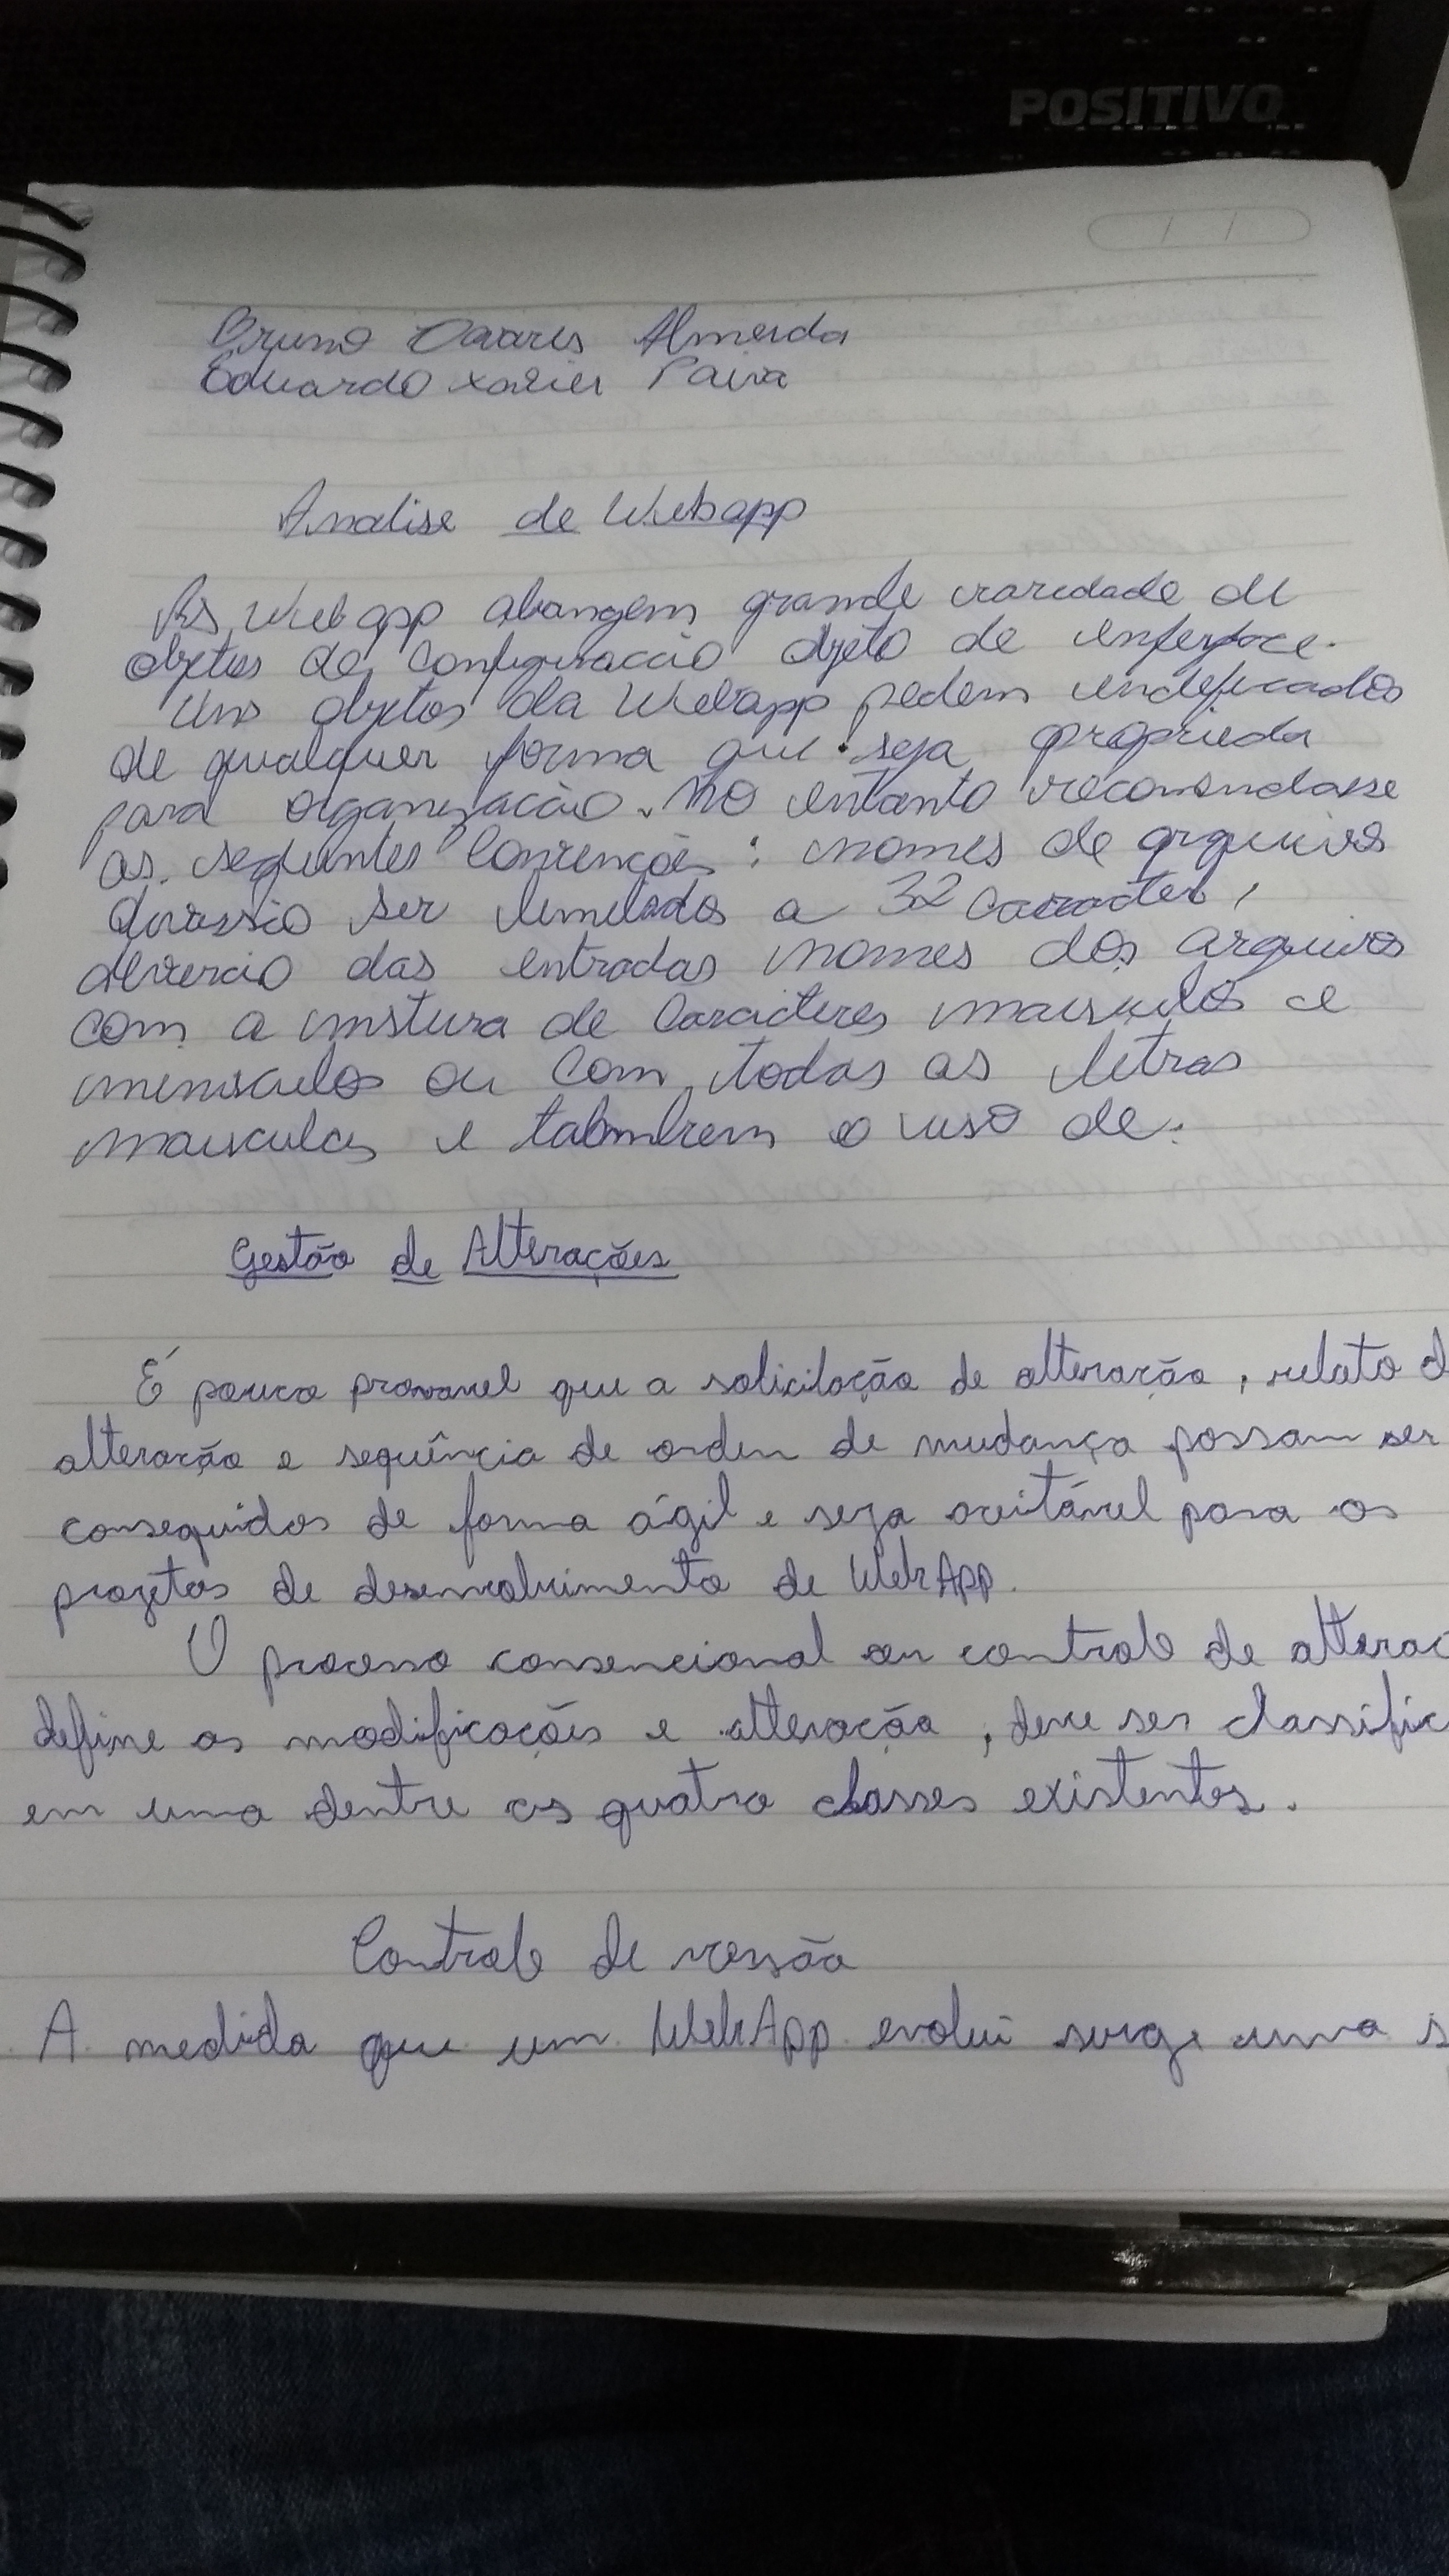 POSITIVO
Bruno Tavares Almeida
Eduardo Xavier Paiva
Analise de Webapp
As Webapp abangem grande variedade de
objetos de configuracão objeto de interface.
Uns objetos da Webapp podem
de qualquer forma que seja proprieda
para organização. No entanto recomendasse
as seguintes Convenções: nomes de arquivos
ser limitados a 32 Caracter,
das entradas nomes dos arquivos
com a mistura de Caracteres maisculos e
minisculos ou Com todas as letras
maisculas e o uso de:
Gestão de Alterações
É pouco provavel que a solicitação de alteração, relato d
alteração e sequência de orden de mudança possam ser
conseguidos de forma ágil e seja para os
projetos de desenvolvimento de WebApp.
O processo ou controle de alterac
define as modificações e alteração, deve ser classific
em uma dentre as quatro classes existentes.
Controle de versão
A medida que um WebApp evolui surge uma s